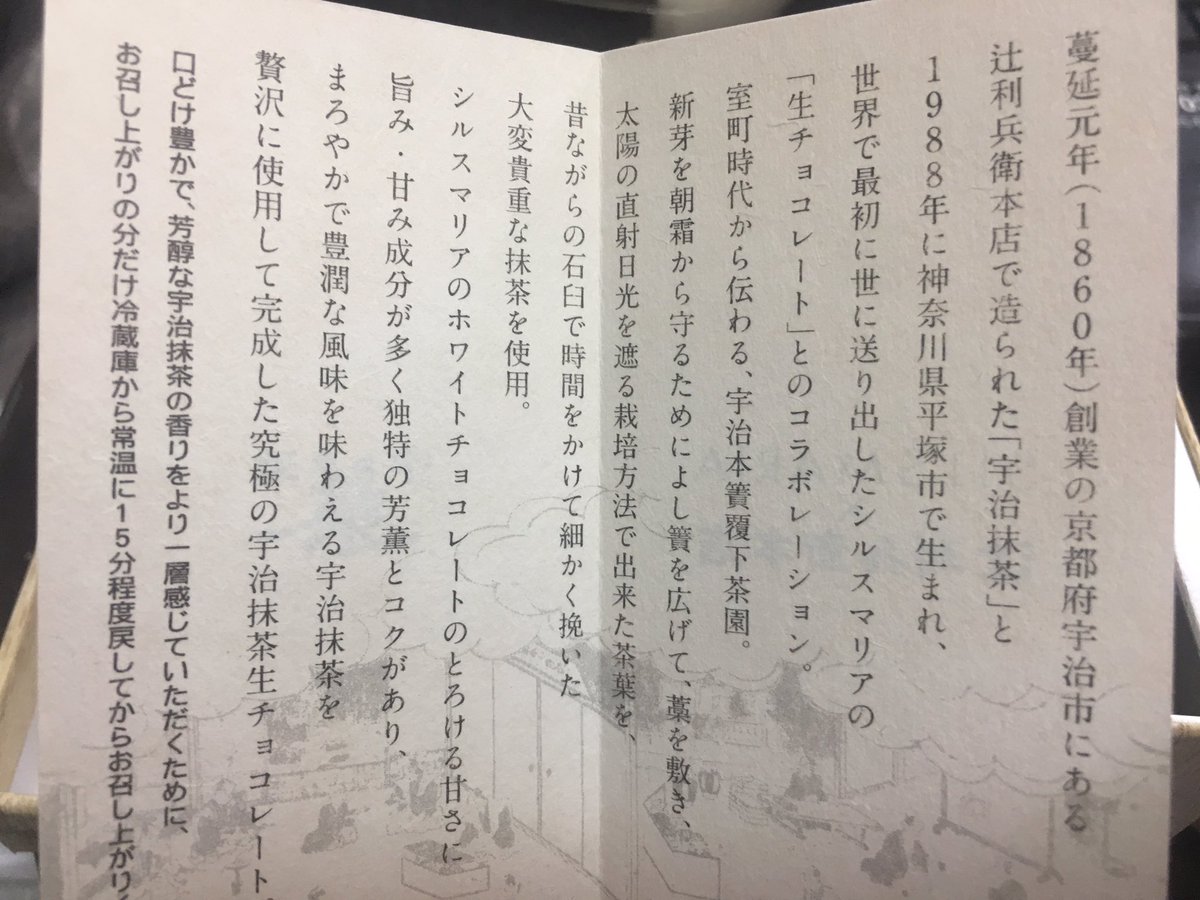 蔓延元年（１８６０年）創業の京都府宇治市にある
辻利兵衛本店で造られた「宇治抹茶」と
１９８８年に神奈川県平塚市で生まれ、
世界で最初に世に送り出したシルスマリアの
「生チョコレート」とのコラボレーション。
室町時代から伝わる、宇治本簀覆下茶園。
新芽を朝霜から守るためによし簀を広げて、藁を敷き、
太陽の直射日光を遮る栽培方法で出来た茶葉を、
昔ながらの石臼で時間をかけて細かく挽いた
大変貴重な抹茶を使用。
シルスマリアのホワイトチョコレートのとろける甘さに
旨み・甘み成分が多く独特の芳薫とコクがあり、
まろやかで豊潤な風味を味わえる宇治抹茶を
贅沢に使用して完成した究極の宇治抹茶生チョコレート
口どけ豊かで、芳醇な宇治抹茶の香りをより一層感じていただくために、
お召し上がりの分だけ冷蔵庫から常温に１５分程度戻してからお召し上がり